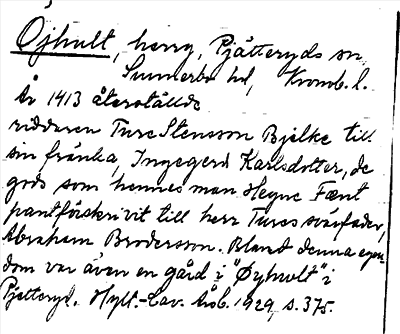 Öjhult, herrg, Pjätteryds sn,
Sunnerbo hd, Kronob. l.
År 1413 återställde
riddaren Ture Stensson Bjelke till
sin fränka, Ingegerd Karlsdotter, de
gods som hennes man Heyne Fænt
pantförskrivit till herr Tures svärfader,
Abraham Brodersson. Bland denna egen-
dom var även en gård i "Øyhult" i
Pjetteryd. Hylt.-Cav. årsb. 1929, s. 375.